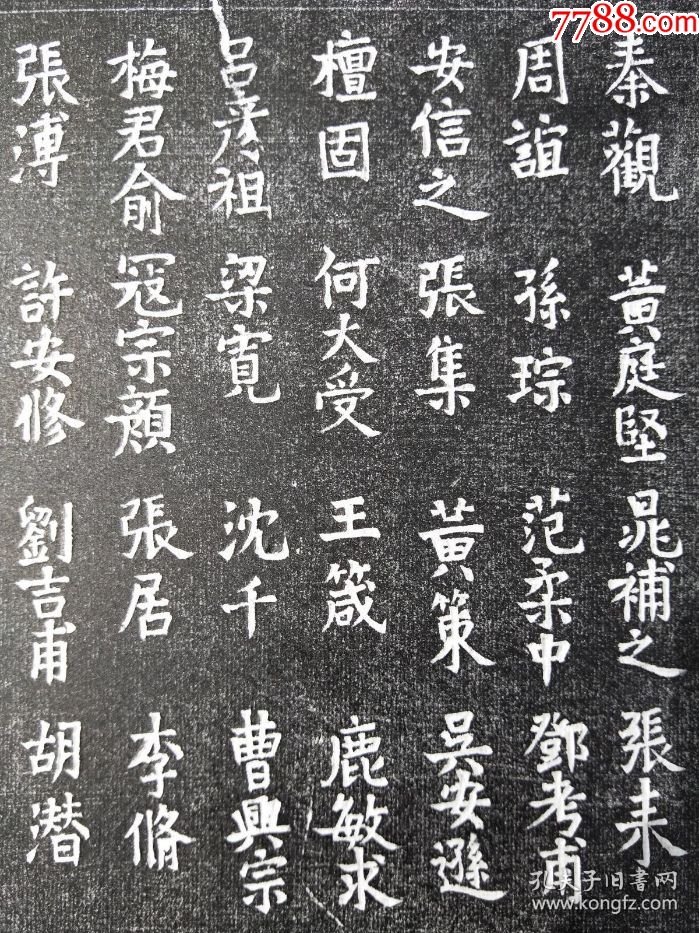 7788.com
秦觀 黃庭堅 晁補之 張耒
周誼 孫琮 范柔中 鄧考甫
安信之 張集 黃策 吳安遜
檀固 何大受 王箴 鹿敏求
呂彥祖 梁寬 沈千 曹興宗
梅君俞 寇宗顏 張居 李脩
張溥 許安修 劉吉甫 胡潛
孔夫子旧书网
www.kongfz.com